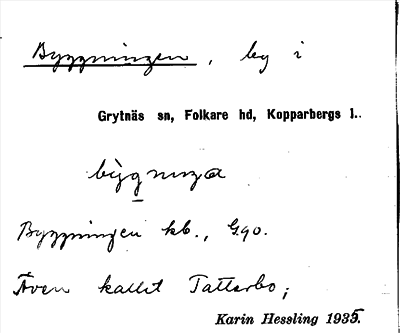 Byggningen, by i
Grytnäs sn, Folkare hd, Kopparbergs l..
Byggningen kb.,
Även kallet Tatterbo;
Karin Hessling 1935.